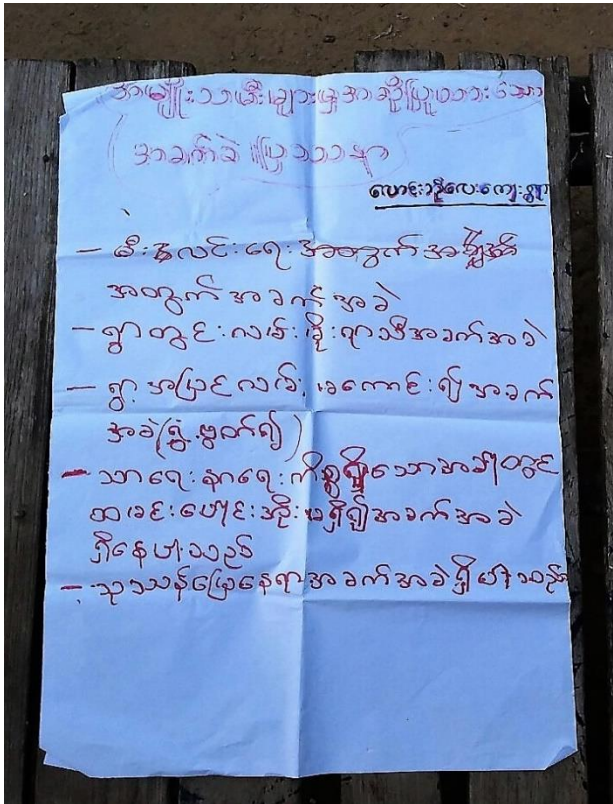 အမျိုးသမီးများမှအဆိုပြုထားသော
အခက်ခဲ ပြဿနာ
လောင်းဘိုလေးကျေးရွာ
– မီးလင်းရေးအတွက်အချို့အိမ်
အတွက်အခက်အခဲ
– ရွာတွင်းလမ်းမိုးရာသီအခက်အခဲ
– ရွာ့အပြင်လမ်းမကောင်း၍အခက်
အခဲ(ရွှံ့ဗွက်၍)
– သာရေးနာရေးကိစ္စရှိသောအခါတွင်
ထမင်းပေါင်းအိုးမရှိ၍အခက်အခဲ
ရှိနေပါသည်
– သုဿန်မြေနေရာအခက်အခဲရှိပါသည်